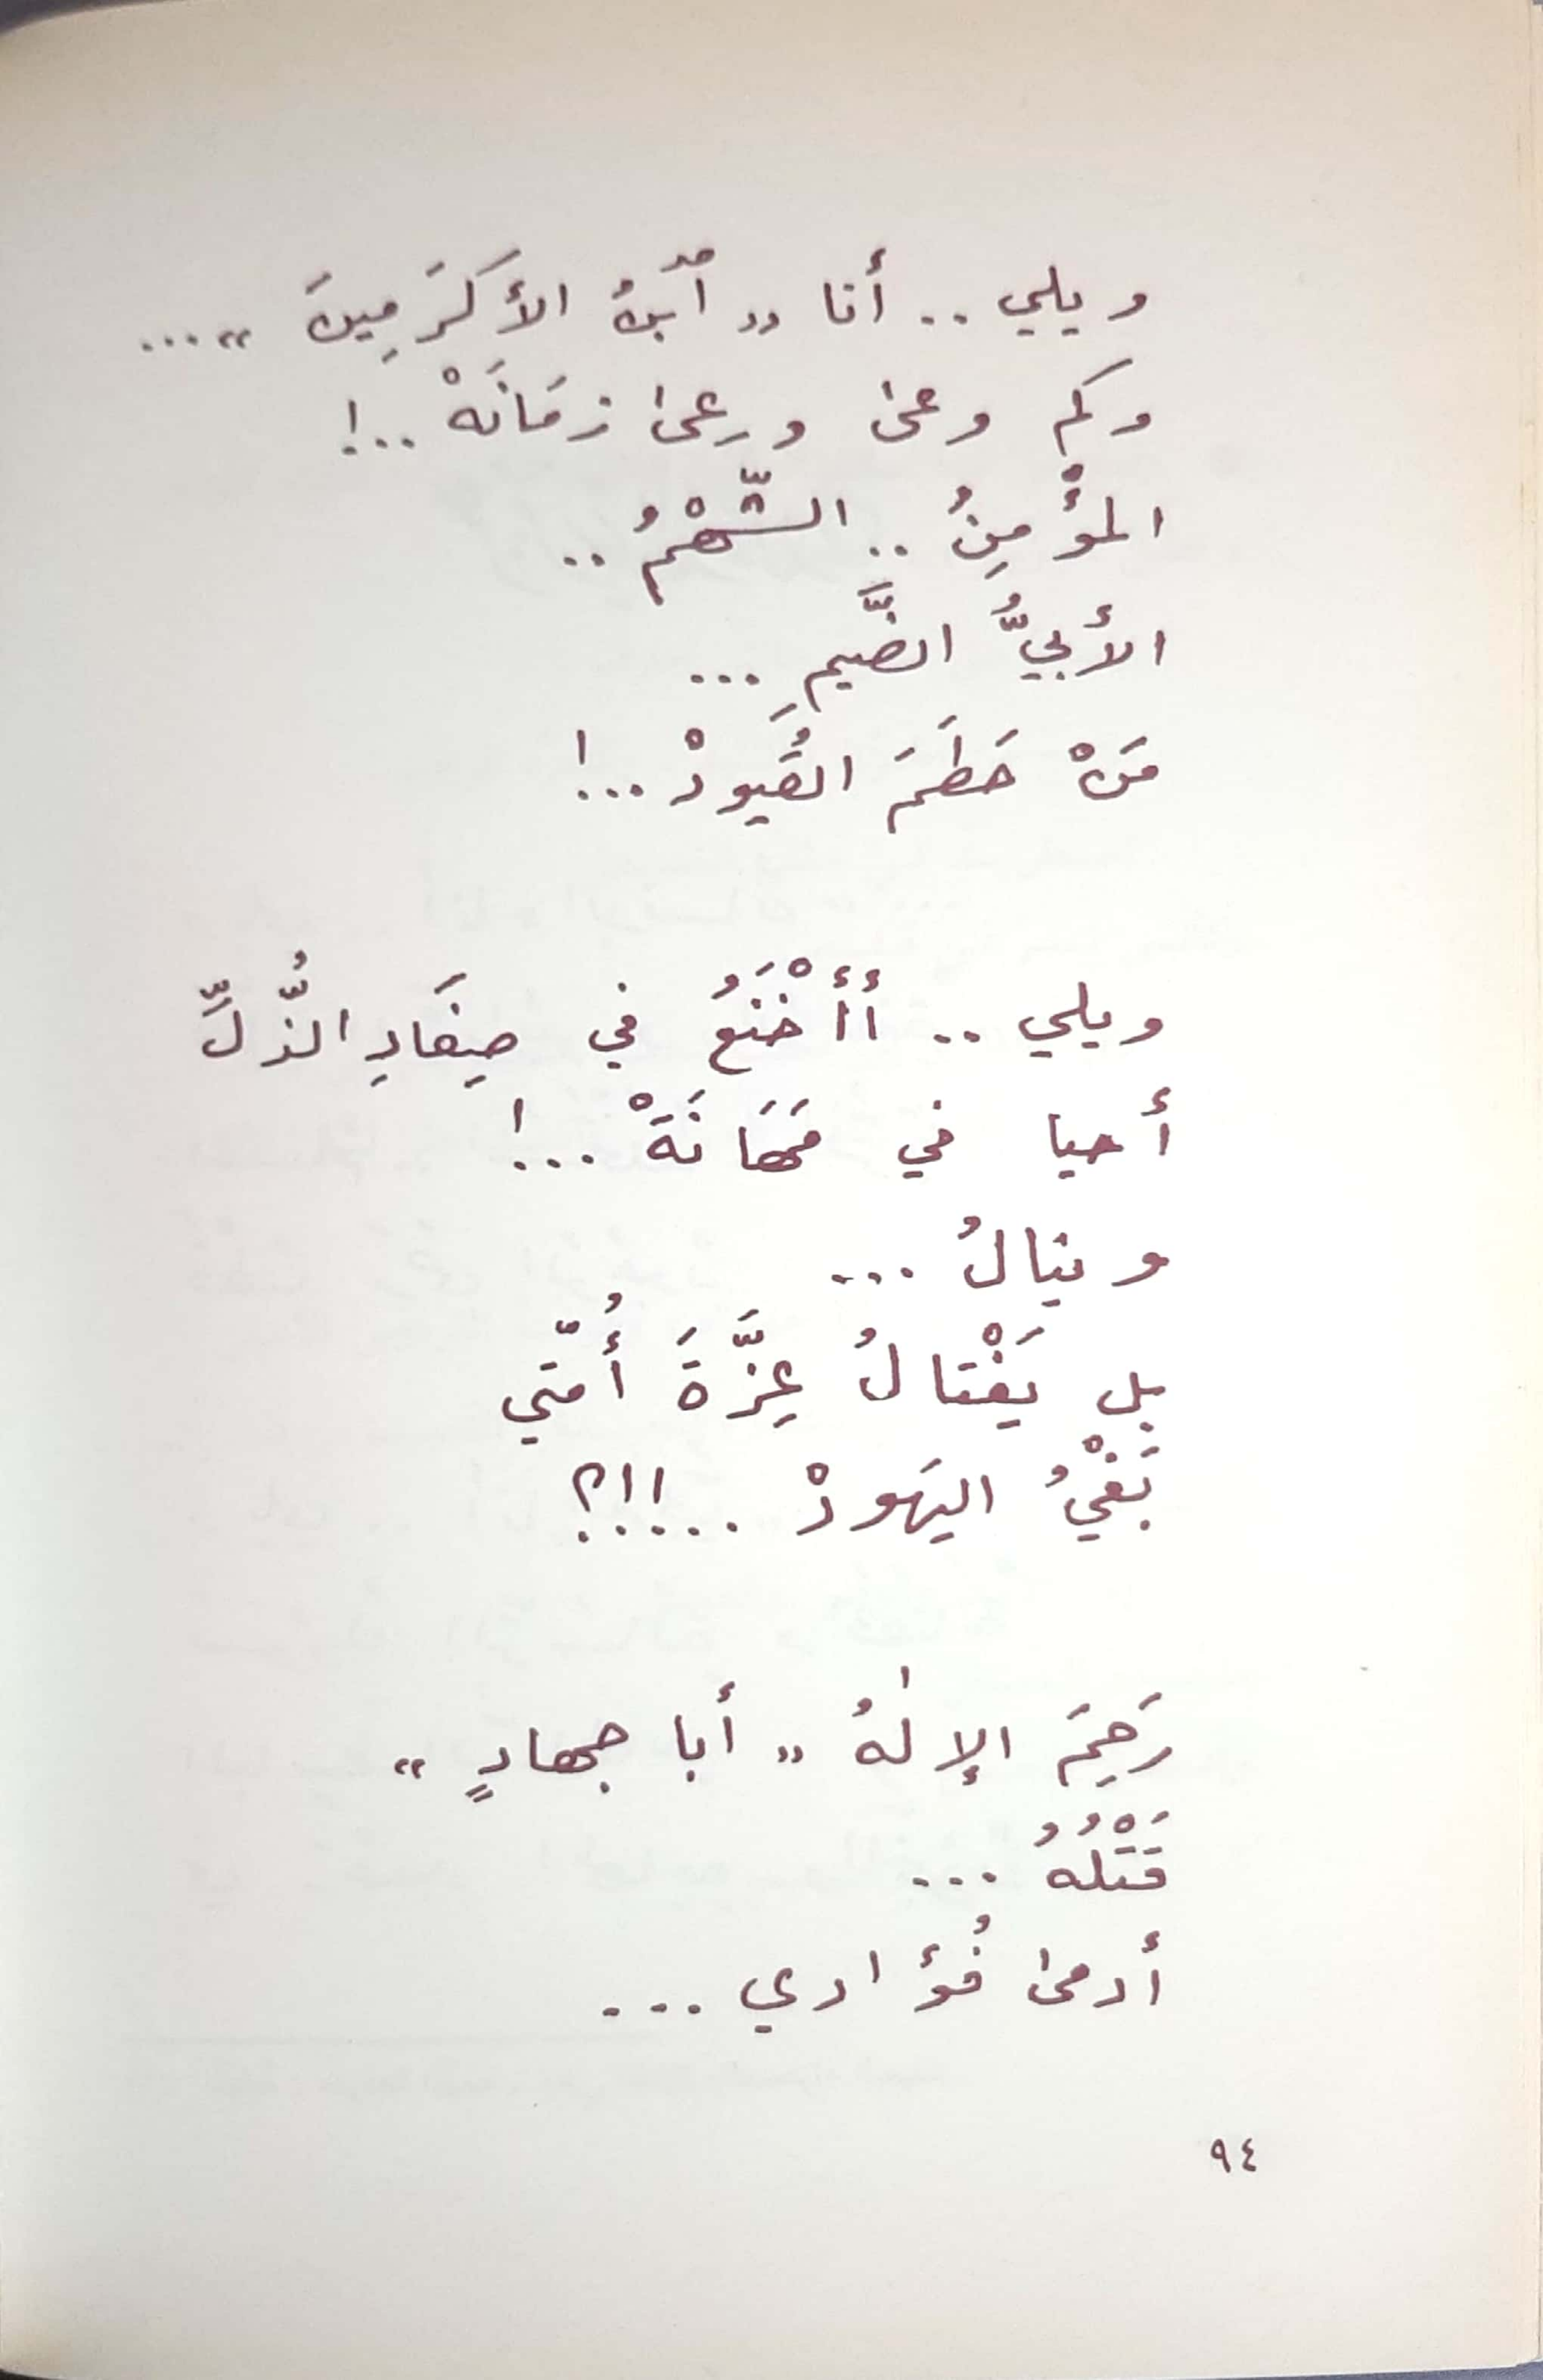 ويلي .. أنا « ٱبنُ الأكرَمِينَ » ...
وكم وعىٰ ورعىٰ زمَانَهْ ..!
المؤْمِنُ .. الشَّهْمُ ..
الأبيُّ الضَّيمِ ...
مَنْ حَطَمَ القُيودْ ...!
ويلي .. أأخْنَعُ في صِفَادِ الذُّلِّ
أحيا في مَهَانَةْ ...!
وينالُ ...
بل يَغْتالُ عِزَّةَ أُمّتي
بَغْيُ اليَهودْ ...!!؟
رَحِمَ الإلٰهُ « أبا جهادٍ »
قَتْلُهُ ...
أدمىٰ فُؤادي ...
٩٤